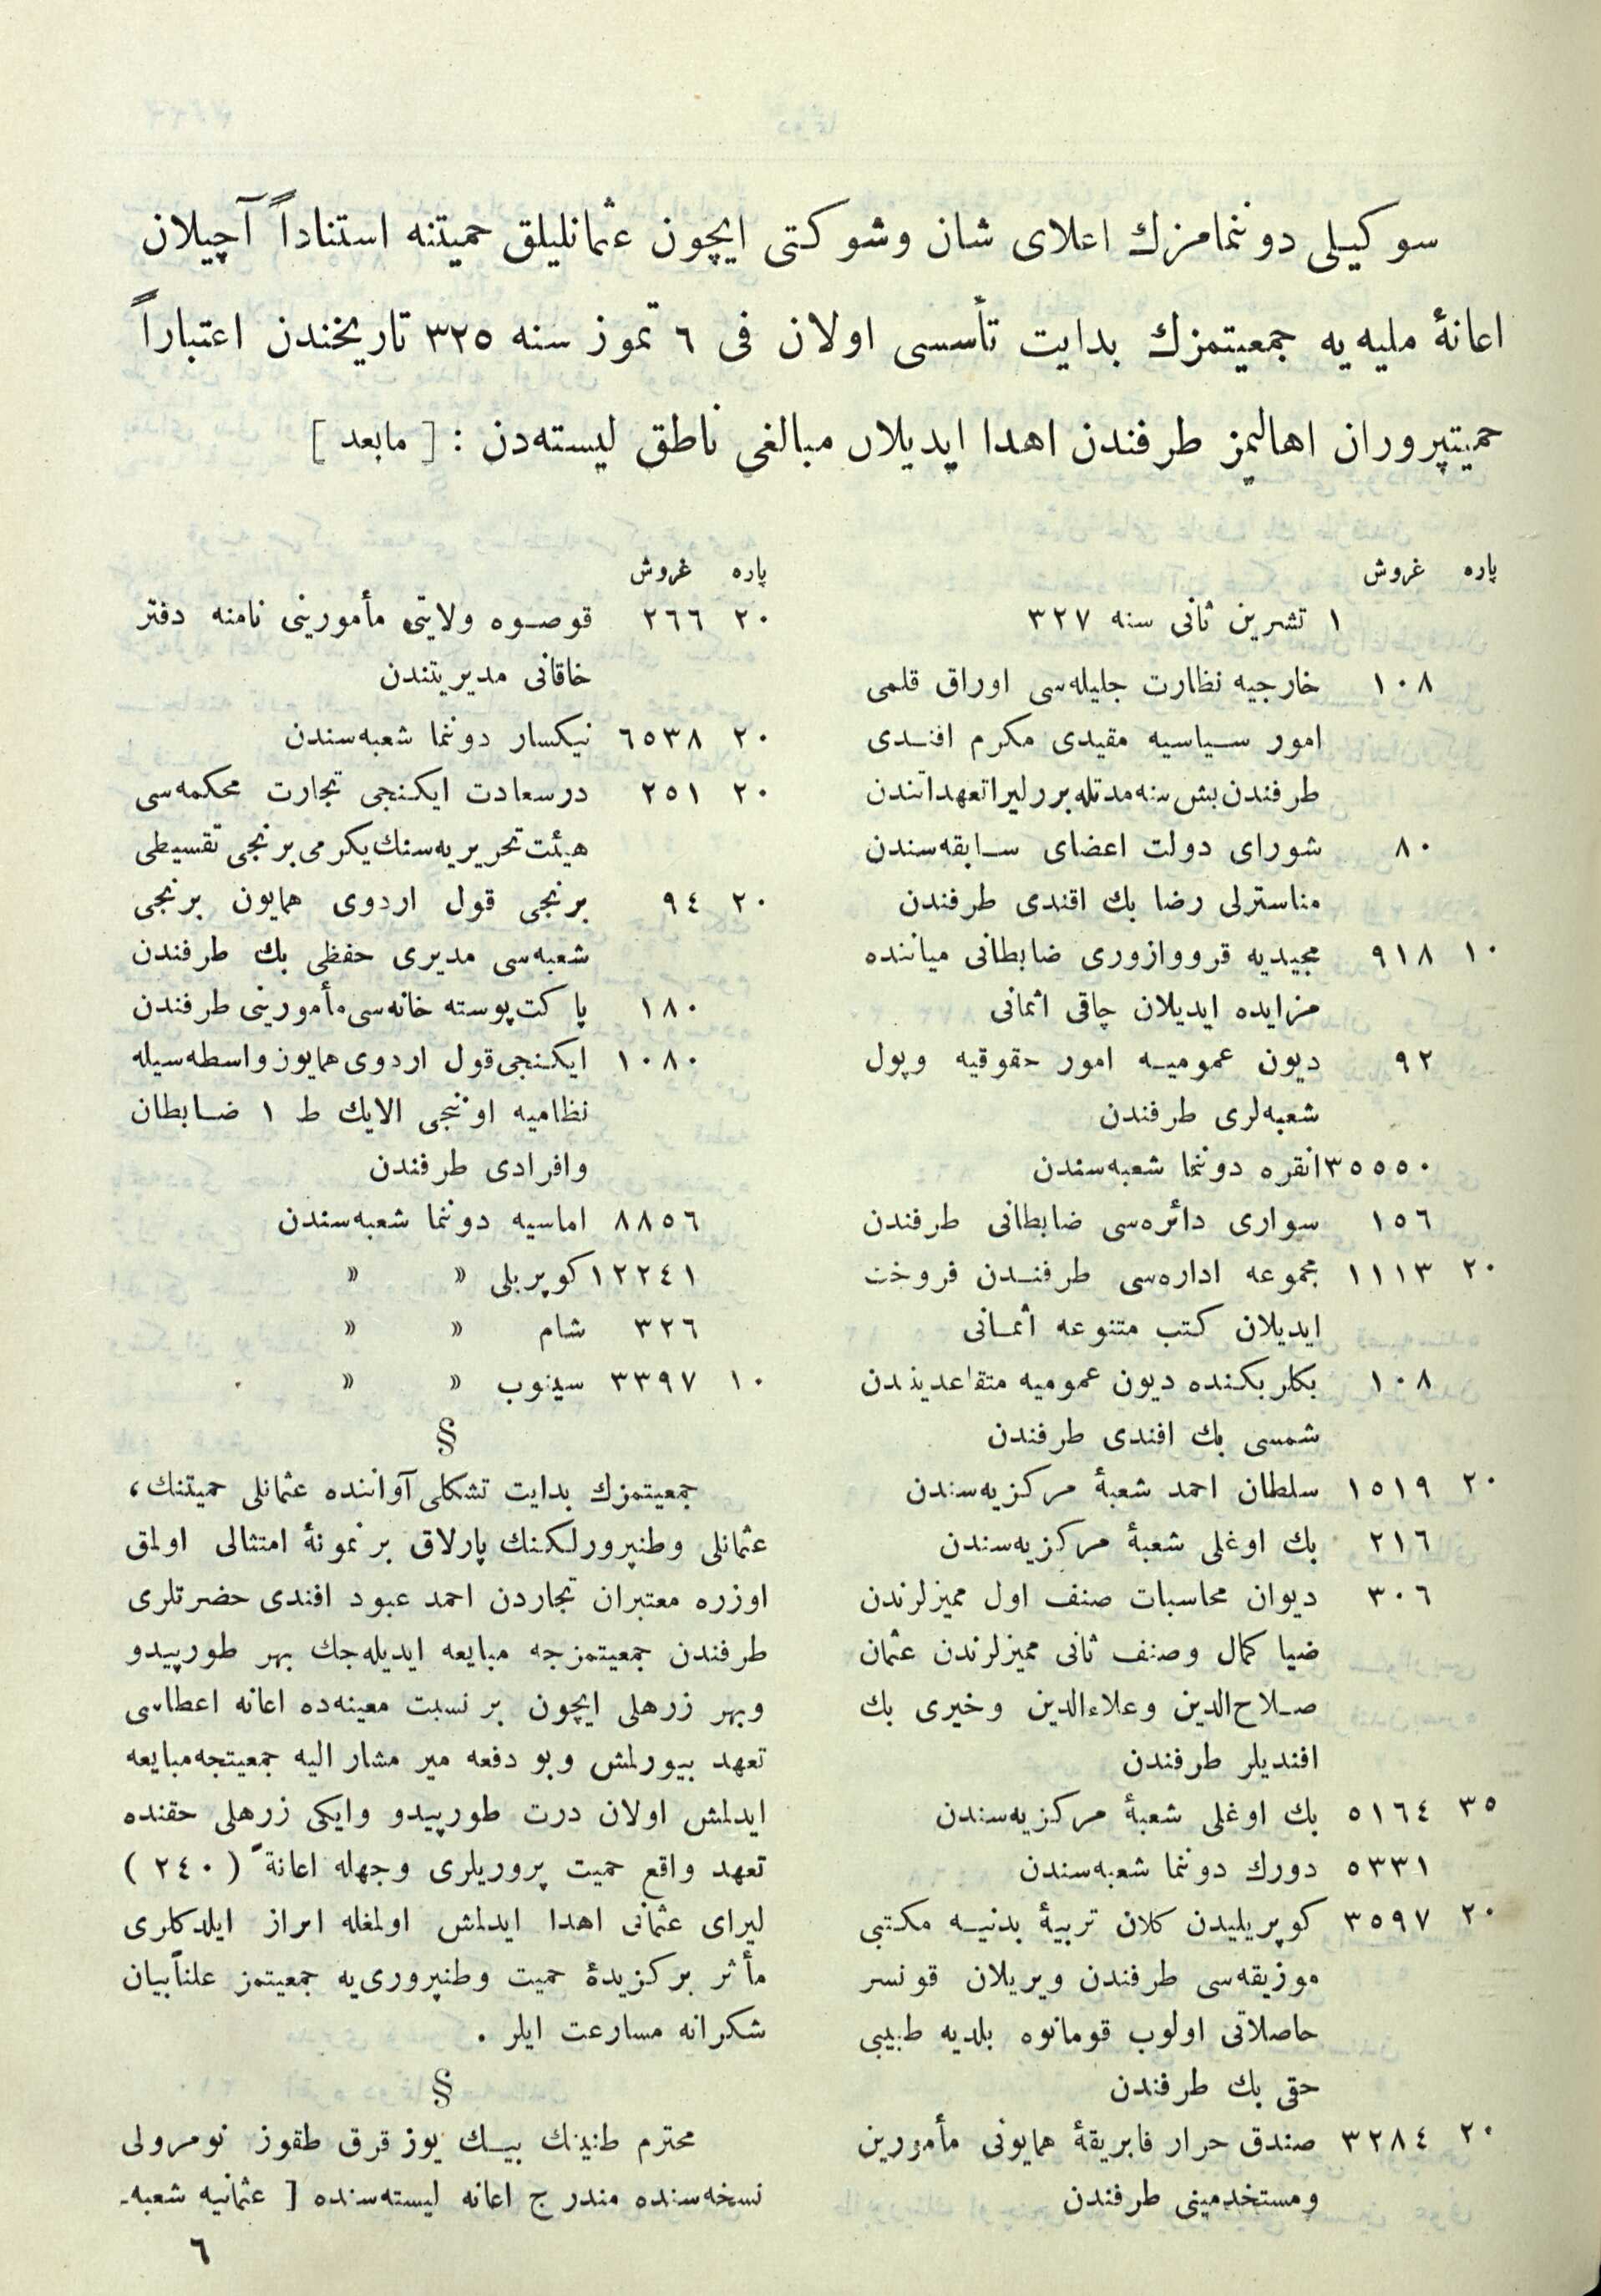 سوكيلى دوننمامزك اعلاى شان وشوكتى ايچون عثمانليلق حميتنه استناداً آچيلان
اعانهٔ مليه‌يه جمعيتمزك بدايت تأسسى اولان فى ٦ تموز سنه ٣٢٥ تاريخندن اعتباراً
حميتپروران اهاليمز طرفندن اهدا ايديلان مبالغى ناطق ليسته‌دن : [ مابعد ]
پاره غروش
١ تشرين ثانى سنه ٣٢٧
١٠٨ خارجيه نظارت جليله‌سى اوراق قلمى
امور سياسيه مقيدى مكرم افندى
طرفندن بش سنه مدتله برر ليرا تعهداتندن
٨٠ شوراى دولت اعضاى سابقه‌سندن
مناسترلى رضا بك افندى طرفندن
١٠ ٩١٨ مجيديه قرووازورى ضابطانى مياننده
مزايده ايديلان چاقى اثمانى
٩٢ ديون عموميه امور حقوقيه وپول
شعبه‌لرى طرفندن
٣٥٥٥٠ انقره دوننما شعبه‌سندن
١٥٦ سوارى دائره‌سى ضابطانى طرفندن
٢٠ ١١١٣ مجموعه اداره‌سى طرفندن فروخت
ايديلان كتب متنوعه اثمانى
١٠٨ بكلربكنده ديون عموميه متقاعديندن
شمسى بك افندى طرفندن
٢٠ ١٥١٩ سلطان احمد شعبهٔ مركزيه‌سندن
٢١٦ بك اوغلى شعبهٔ مركزيه‌سندن
٣٠٦ ديوان محاسبات صنف اول مميزلرندن
ضيا كمال وصنف ثانى مميزلرندن عثمان
صلاح‌الدين وعلاءالدين وخيرى بك
افنديلر طرفندن
٣٥ ٥١٦٤ بك اوغلى شعبهٔ مركزيه‌سندن
٥٣٣١ دورك دوننما شعبه‌سندن
٢٠ ٣٥٩٧ كوپريليدن كلان تربيهٔ بدنيه مكتبى
موزيقه‌سى طرفندن ويريلان قونسر
حاصلاتى اولوب قومانوه بلديه طبيبى
حقى بك طرفندن
٢٠ ٣٢٨٤ صندق حرار فابريقهٔ همايونى مأمورين
ومستخدمينى طرفندن
پاره غروش
٢٠ ٢٦٦ قوصوه ولايتى مأمورينى نامنه دفتر
خاقانى مديريتندن
٢٠ ٦٥٣٨ نيكسار دوننما شعبه‌سندن
٢٠ ٢٥١ درسعادت ايكنجى تجارت محكمه‌سى
هيئت تحريريه‌سنك يكرمى برنجى تقسيطى
٢٠ ٩٤ برنجى قول اردوى همايون برنجى
شعبه‌سى مديرى حفظى بك طرفندن
١٨٠ پاكت پوسته خانه‌سى مأمورينى طرفندن
١٠٨٠ ايكنجى قول اردوى همايون واسطه‌سيله
نظاميه اوننجى الايك ط ١ ضابطان
وافرادى طرفندن
٨٨٥٦ اماسيه دوننما شعبه‌سندن
١٢٢٤١ كوپريلى » »
٣٢٦ شام » »
١٠ ٣٣٩٧ سينوب » »
§
جمعيتمزك بدايت تشكلى آواننده عثمانلى حميتنك،
عثمانلى وطنپرورلكنك پارلاق بر نمونهٔ امتثالى اولمق
اوزره معتبران تجاردن احمد عبود افندى حضرتلرى
طرفندن جمعيتمزجه مبايعه ايديله‌جك بهر طورپيدو
وبهر زرهلى ايچون بر نسبت معينه‌ده اعانه اعطاسى
تعهد بيورلمش وبو دفعه مير مشار اليه جمعيتجه مبايعه
ايدلمش اولان درت طورپيدو وايكى زرهلى حقنده
تعهد واقع حميت پروريلرى وجهله اعانةً ( ٢٤٠ )
ليراى عثمانى اهدا ايدلمش اولمغله ابراز ايلدكلرى
مأثر بركزيدهٔ حميت وطنپرورى‌يه جمعيتمز علناً بيان
شكرانه مسارعت ايلر .
§
محترم طنينك بيك يوز قرق طقوز نومرولى
نسخه‌سنده مندرج اعانه ليسته‌سنده [ عثمانيه شعبه‌ـ
٦